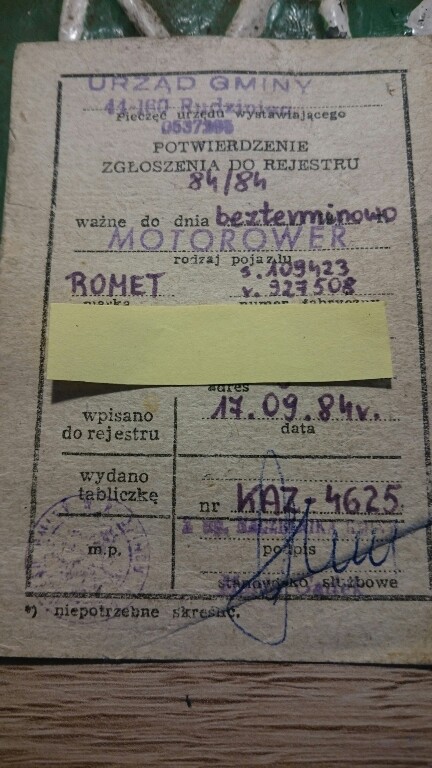 URZĄD GMINY
44-160 Rudziniec
Pieczęć urzędu wystawiającego
POTWIERDZENIE
ZGŁOSZENIA DO REJESTRU
84/84
ważne do dnia bezterminowo
MOTOROWER
rodzaj pojazdu
ROMET
s. 109423
r. 927508
marka numer fabryczny
adres
wpisano do rejestru
17.09.84r.
data
wydano tabliczkę
nr KAZ-4625
m.p.
podpis
stanowisko służbowe
*) niepotrzebne skreślić.